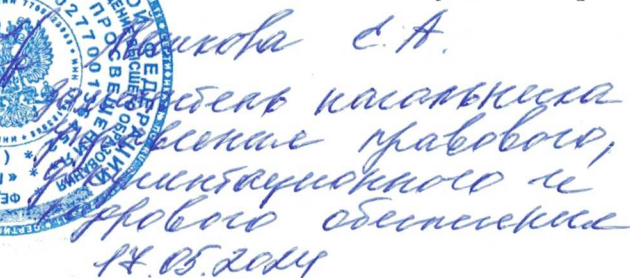 Е.А.
заместитель начальника
управления правового,
документационного и
кадрового обеспечения
17.05.2024